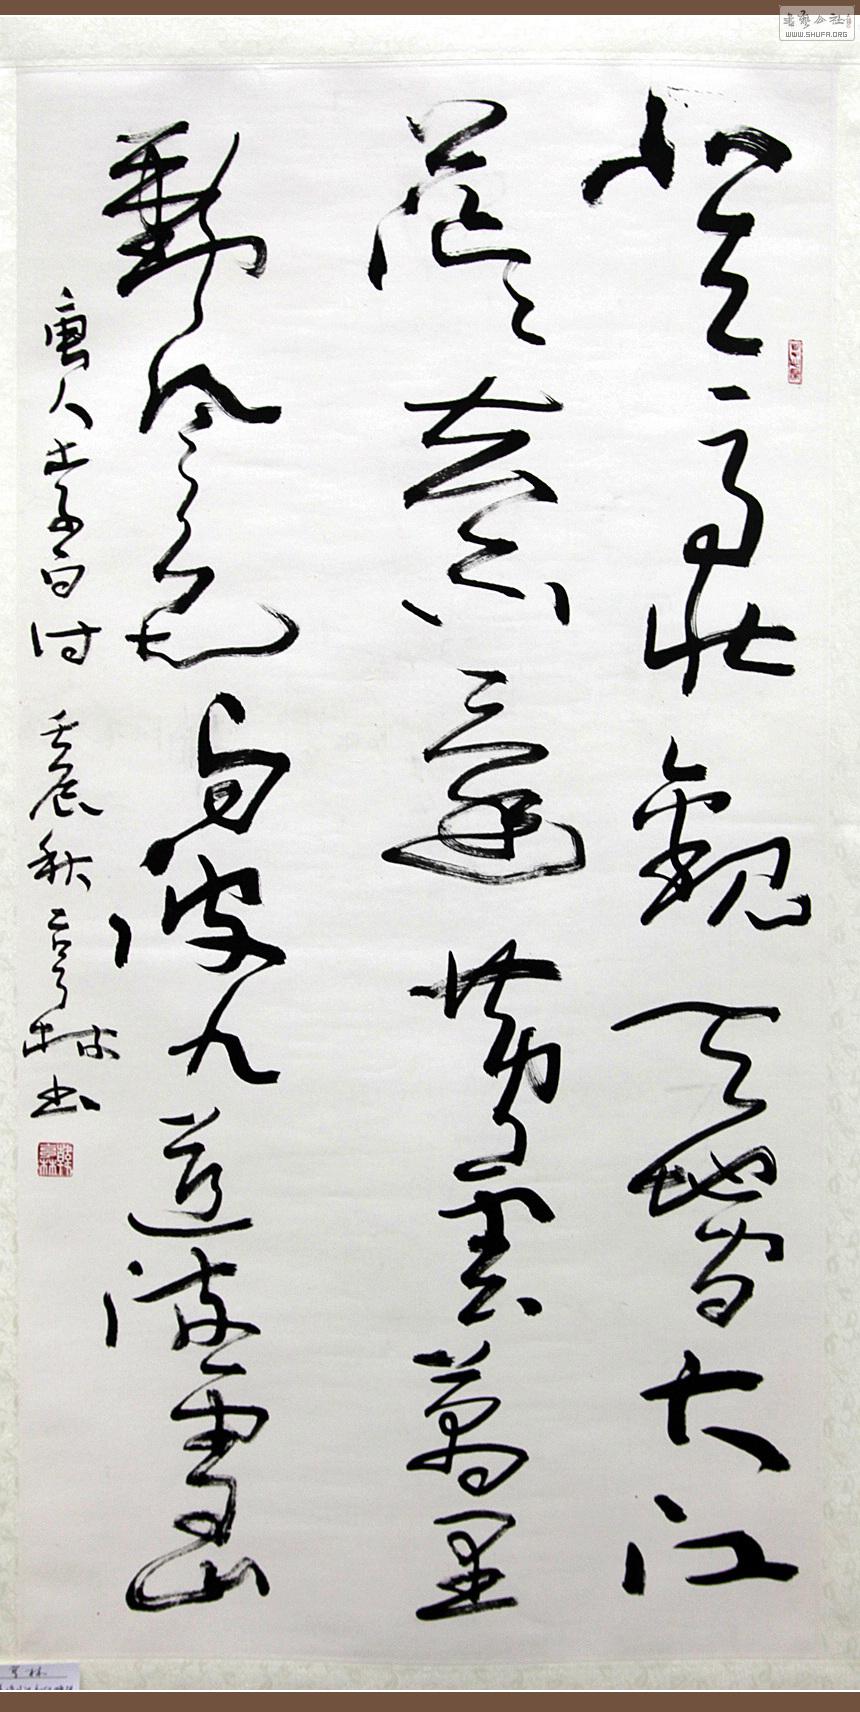 書藝公社
WWW.SHUFA.ORG
登高壯觀天地間大江
茫茫去不還黃雲萬里
動風色白波九道流雪山
唐人李白詩 壬辰秋亨林書